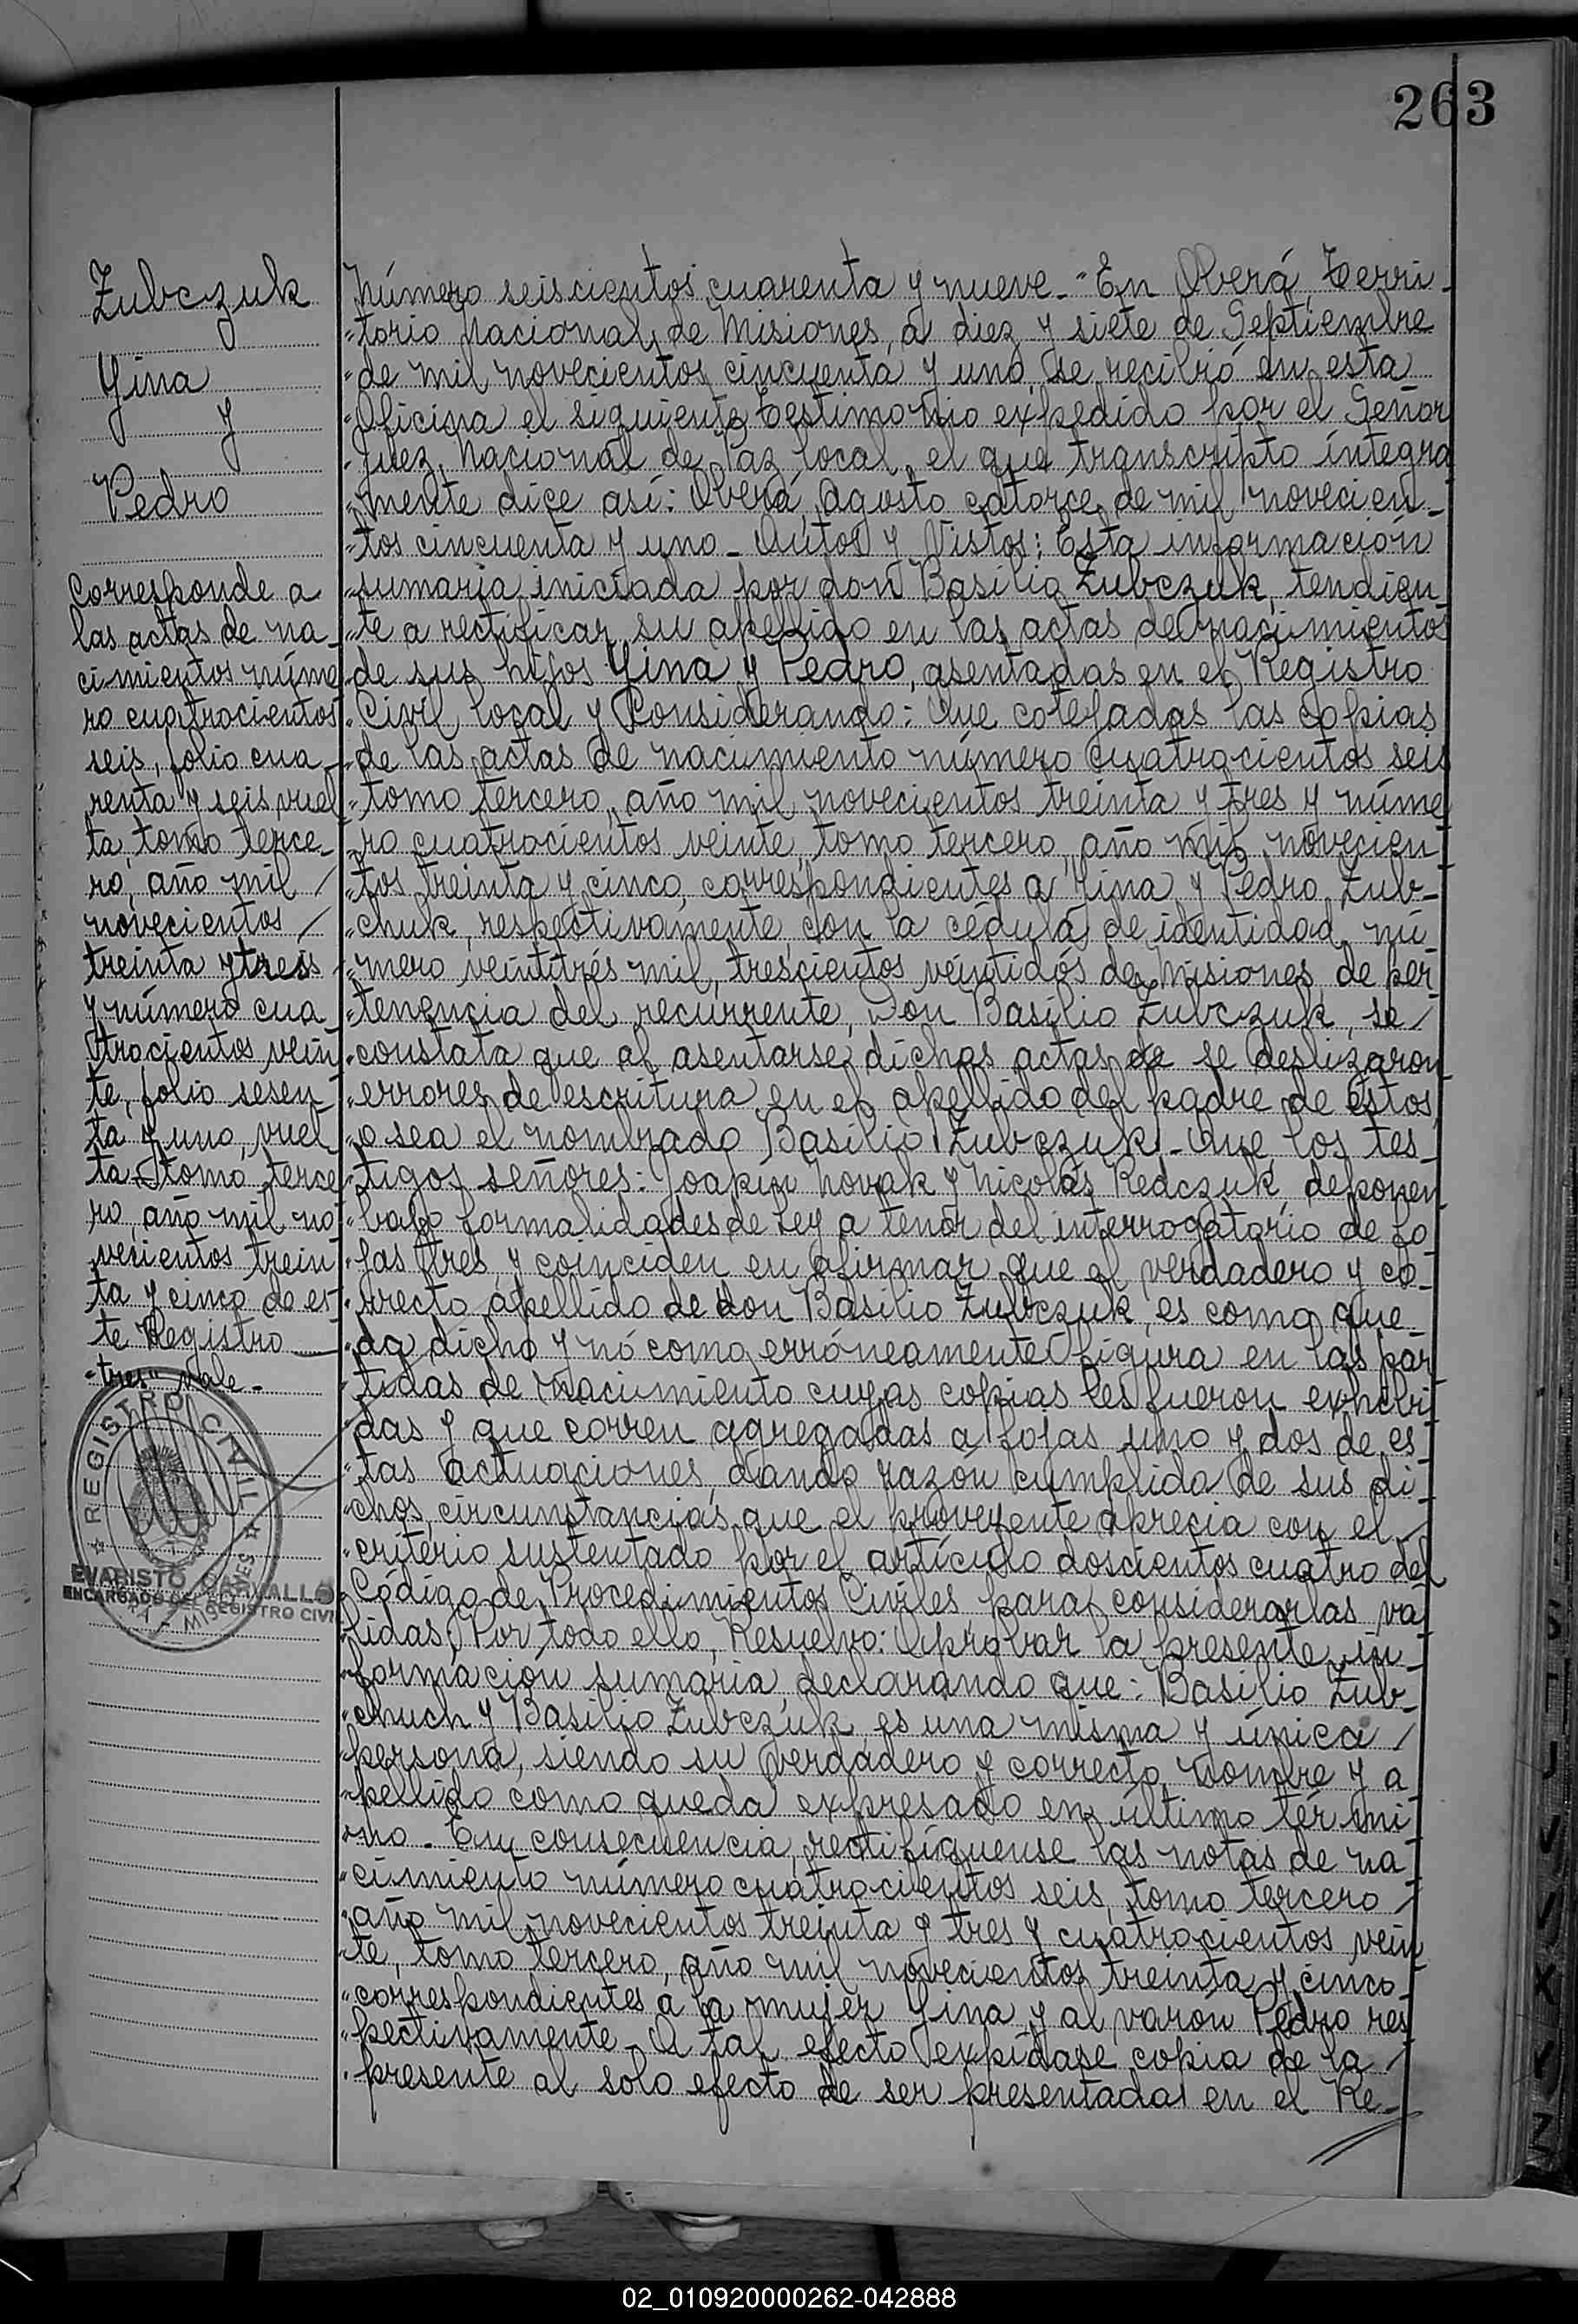 263
Zubczuk
Yina
y
Pedro
Corresponde a
las actas de na-
cimientos núme
ro cuatrocientos
seis, folio cua-
renta y seis vuel
ta, tomo terce-
ro, año mil /
novecientos /
treinta y tres
y número cua-
trocientos vein
te, folio sesen-
ta y uno, vuel
ta tomo terce
ro, año mil no
vecientos trein
ta y cinco de es-
te Registro
"tres" Vale.-
REGISTRO CIVIL
MISIONES
EVARISTO CARVALLO
ENCARGADO DEL REGISTRO CIVIL
Número seiscientos cuarenta y nueve.- "En Oberá, Terri-
"torio Nacional de Misiones, a diez y siete de Septiembre
"de mil novecientos cincuenta y uno, se recibió en esta
"Oficina el siguiente testimonio expedido por el Señor
"Juez Nacional de Paz local, el que transcripto íntegra
"mente dice así: Oberá, Agosto catorce de mil novecien-
"tos cincuenta y uno- Autos y Vistos: Esta información
"sumaria iniciada por don Basilio Zubczuk, tendien
"te a rectificar su apellido en las actas de nacimientos
"de sus hijos Yina y Pedro, asentadas en el Registro
"Civil local y Considerando: Que cotejadas las copias
"de las actas de nacimiento número cuatrocientos seis
"tomo tercero, año mil novecientos treinta y tres y núme
"ro cuatrocientos veinte, tomo tercero, año mil novecien
"tos treinta y cinco, correspondientes a Yina y Pedro Zub-
"chuk, respectivamente, con la cédula de identidad nú-
"mero veintitrés mil, trescientos veintidós de Misiones de per
"tenencia del recurrente, Don Basilio Zubczuk, se /
"constata que al asentarse dichas actas de se deslizaron
"errores de escritura en el apellido del padre de éstos,
"o sea el nombrado Basilio Zubczuk.- Que los tes-
"tigos señores: Joakin Novak y Nicolás Redczuk, deponen
"bajo formalidades de Ley a tenor del interrogatorio de fo
"jas tres, y coinciden en afirmar que el verdadero y co-
"rrecto apellido de don Basilio Zubczuk, es como que-
"da dicho y nó como erróneamente figura en las par
"tidas de nacimiento cuyas copias les fueron exhibi
"das y que corren agregadas a fojas uno y dos de es
"tas actuaciones, dando razón cumplida de sus di-
"chos, circunstancias que el proveyente aprecia con el /
"criterio sustentado por el artículo doscientos cuatro del
"Código de Procedimientos Civiles para considerarlas vá
"lidas; Por todo ello, Resuelvo: Aprobar la presente in-
"formación sumaria, declarando que: Basilio Zub-
"chuch y Basilio Zubczuk, es una misma y única /
"persona, siendo su verdadero y correcto nombre y a
"pellido como queda expresado en último térmi
"no.- En consecuencia, rectifíquense las notas de na-
"cimiento número cuatrocientos seis, tomo tercero /
"año mil novecientos treinta y tres y cuatrocientos vein
"te, tomo tercero, año mil novecientos treinta y cinco-
"correspondientes a la mujer Yina y al varón Pedro res
"pectivamente- A tal efecto expídase copia de la /
"presente al solo efecto de ser presentada en el Re-
02_010920000262-042888